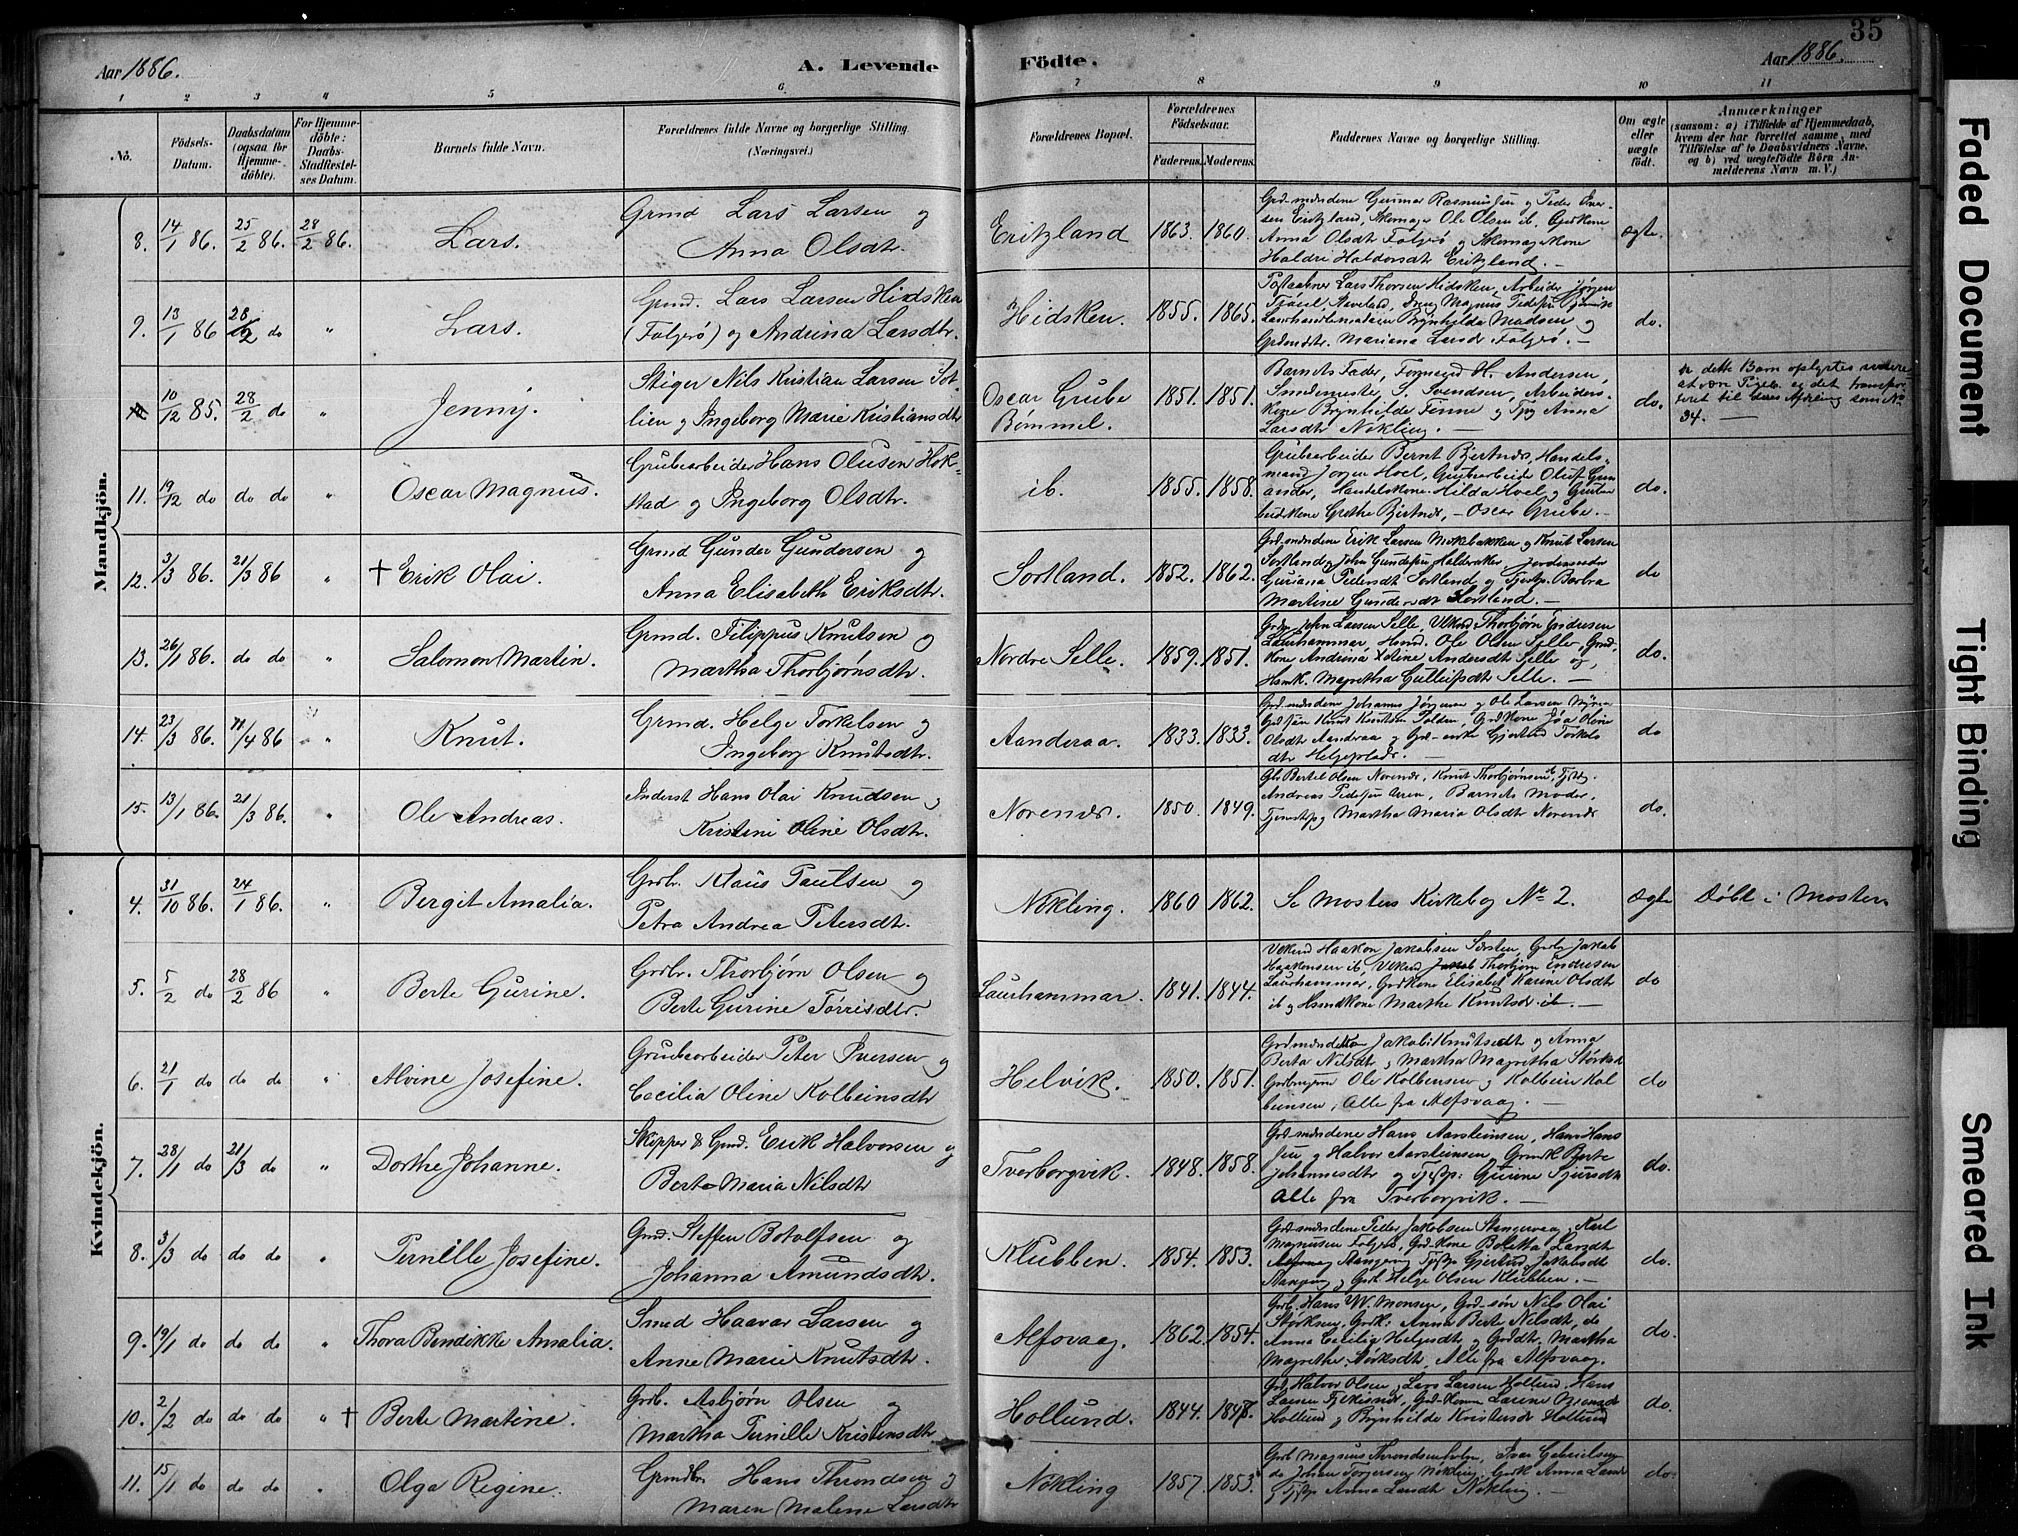 35
Aar 1886.
A. Levende Födte.
Aar 1886.
1 2 3 4 5 6. 7 8 9 10 11
No.
Födsels-Datum.
Daabsdatum (ogsaa for Hjemmedöbte).
For Hjemmedöbte: Daabs-Stadfæstelses Datum.
Barnets fulde Navn.
Forældrenes fulde Navne og borgerlige Stilling. (Næringsvei.)
Forældrenes Bopæl.
Forældrenes Födselsaar.
Faderens. Moderens.
Faddernes Navne og borgerlige Stilling.
Om ægte eller uægte födt.
Anmærkninger
(saasom: a) i Tilfælde af Hjemmedaab, hvem der har forrettet samme, med Tilföielse af to Daabsvidners Navne, og b) ved uægtefödte Börn Anmelderens Navn m. V.)
Mandkjön.
8. 14/1 86. 25/2 86. 28/2 86. Lars.
Grmd Lars Larsen og
Anna Olsdtr.
Eritzland 1863. 1860.
Grd-mændene Gunnar Rasmussen og Peder Iver-
sen Eritzland, Skomager Ole Olsen ib, Grdkone
Anna Olsdt Folgerø og Skomagerkone
Haldri Haldorsdt Eritzland. —
ægte.
9. 13/1 86 28/2 do " Lars.
Grmd. Lars Larsen Hidsken
(Folgerø) og Andrina Larsdtr.
Hidsken. 1855. 1865.
Postaabner Lars Thorsen Hidsken, Arbeider Jørgen
Brynhilda Madsen og
Grdmdtr. Mariana Larsdt Folgerø. —
do.
10/12 85. 28/2 do " Jenny.
Stiger Nils Kristian Larsen Sot-
lien og Ingeborg Marie Kristiansdt
Oscar Grube
Bømmel.
1851. 1851.
Barnets Fader, Formand H. Andersen,
Smedemester S. Svendsen, Arbeiders-
kone Brynhilde Finne og Tpg Anna
Larsdtr Nøkling. —
do.
dette Barn oplystes senere
at være Pige og det transpor-
teret til deres Afdeling som No
34. —
11. 19/12 do do do " Oscar Magnus.
Grubearbeider Hans Olusen Hok-
stad og Ingeborg Olsdtr.
ib. 1855. 1858.
Grubearbeider Bernt Bjertnes, Handels-
mand Jørgen Hoel, Grubearbeider Oluf Gun-
ander, Handelskone Hilda Hoel og Grube
arbkone Grethe Bjertnes, — Oscar Grube. —
do.
12. 3/3 86. 21/3 86 " † Erik Olai.
Grmd Gunder Gundersen og
Anna Elisabeth Eriksdtr.
Sortland. 1852. 1862.
Grd-mændene Erik Larsen Møkbakken og Knut Larsen
Sortland, John Gundersen Halderaker, Jordemoder
Guriana Pedersdt Sortland og Tjestp. Barbra
Martine Gundersdt Sortland. —
do
13. 26/1 86. do do " Salomon Martin.
Grmd. Filippus Knutsen og
Martha Thorbjørnsdtr.
Nordre Selle. 1859. 1851.
Grdm John Larsen Selle, Ukmd Thorbjørn Endresen
Laurhammar, Hsmd. Ole Olsen Selle, Grmd-
kone Andrina Xeline Andersdt Selle og
Hsmk. Magretha Gulleifsdt Selle. —
do.
14. 23/3 86. 11/4 86 " Knut.
Grmd. Helge Torkelsen og
Ingeborg Knutsdtr.
Aanderaa. 1833. 1833.
Grd-mændene Johannes Jørgensen og Ole Larsen Myra
Grdsøn Knut Knutsen Polden, Grdkone Jøa Oline
Olsdt Aanderaa og Grd-enke Gjertrud Torkels
dtr Helgeplads. —
do
15. 13/1 86. 21/3 86. " Ole Andreas.
Inderst Hans Olai Knudsen og
Kristine Oline Olsdtr.
Norenæs. 1850. 1849.
Gbr Bertel Olsen Norenæs, Knut Thorbjørnsen ib,
Andreas Pedersen Aren, Barnets Moder,
Tjenestpg Martha Maria Olsdt Norenæs
do.
Kvindekjön.
4. 31/10 86. 24/1 86. " Bergit Amalia.
Grdbr. Klaus Paulsen og
Petra Andrea Petersdtr.
Nøkling. 1860 1862.
Se Mosters Kirkebog No 2.
Ægte
Døbt i Moster.
5. 5/2 do 28/2 86 " Berte Gurine.
Grdbr. Thorbjørn Olsen og
Berte Gurine Tørrisdtr.
Laurhammar. 1841. 1844.
Ukmd Haakon Jakobsen Sørsten, Grdbr Jakob
Haakonsen ib, Ukmd Thorbjørn Endresen
Laurhammar, Grdkone Elisabet Karine Olsdt
ib og Hsmdkone Marthe Knutsdt ib. —
do
6. 21/1 do do do " Alvine Josefine.
Grubearbeider Peter Iversen og
Cecilia Oline Kolbeinsdtr
Helvik. 1850. 1851.
Jakobi Knutsdt og Anna
Berta Nilsdt, og Martha Magretha Størksd
Ole Kolbensen og Kolbein Kol
beinsen, Alle fra Alfsvaag. —
do
7. 28/1 do 21/3 do " Dorthe Johanne.
Skipper & Grmd. Erik Halvorsen og
Berte Maria Nilsdtr
Tverborgvik. 1848. 1858.
Grd-mændene Hans Aarsteinsen, Hans Hans
sen og Halvor Aarsteinsen, Grmdk Berte
Johannesdtr og Tjstp: Gurine Sjursdtr
Alle fra Tverborgvik. —
do.
8. 3/3 do do do " Pernille Josefine.
Grmd. Steffen Botolfsen og
Johanna Amundsdtr.
Klubben. 1854. 1853.
Grd-mændene Peder Jakobsen Stangervaag, Karl
Magnusen Folgerø, Grd-Kone Boletta Larsdt
Stangervaag Tjstp Gjertrud Jakobsdt
Stangervg og Grdbr Helge Olsen Klubben. —
do.
9. 19/1 do do do " Thora Bendikke Amalia.
Smed Haavar Larsen og
Anne Marie Knutsdtr.
Alfsvaag. 1862. 1854.
Grdbr. Hans W. Monsen, Grd-søn Nils Olai
Størksen, Grdk. Anna Berte Nilsdt, do
Anna Cecilia Helgesdt og Grddtr. Martha
Magrethe Størksdt, Alle fra Alfsvaag.
do.
10. 2/2 do do do " † Berte Martine.
Grdb. Asbjørn Olsen og
Martha Pernille Kristensdtr
Hollund. 1844. 1848.
Grd Halvor Olsen, Lars Larsen Hollund, Hans
Larsen, Grd-Konen Larine Monsdt
Hollund og Brynhilde Kristensdt Hollund
do.
11. 15/1 do do do " Olga Regine.
Grmdbr. Hans Throndsen og
Maren Malene Larsdtr
Nøkling 1857. 1853.
Grdb Magnus Throndsen, Ivar Gabrielsen
do Johan Torgersen Nøkling, Grdk Anna Larsd
og Tjstp Anna Larsdt Nøkling. —
do.
Faded Document
Tight Binding
Smeared Ink